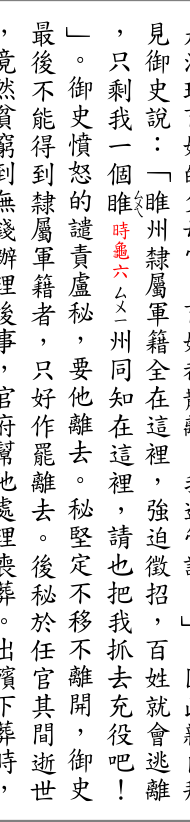 見御史說：「睢州隸屬軍籍全在這裡，強迫徵招，百姓就會逃離
，只剩我一個睢ㄙㄨㄟ時龜六ㄙㄨㄧ州同知在這裡，請也把我抓去充役吧！
」。御史憤怒的譴責盧秘，要他離去。秘堅定不移不離開，御史
最後不能得到隸屬軍籍者，只好作罷離去。後秘於任官其間逝世
，竟然貧窮到無錢辦理後事，官府幫他處理喪葬。出殯下葬時，